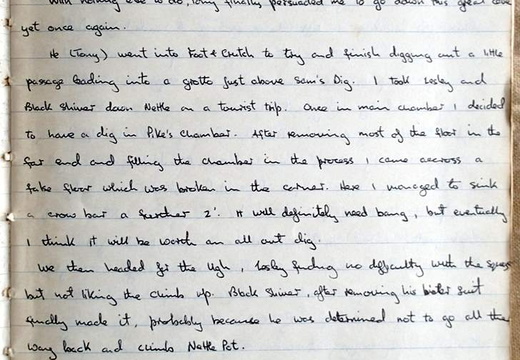 With nothing else to do, Tony finally persuaded me to go down this great cave
yet once again.
He (Tony) went into Foot & Crutch to try and finish digging out a little
passage leading into a grotto just above Sam's Dig. I took Lesley and
Black Shiver down Nettle on a tourist trip. Once in main chamber I decided
to have a dig in Pike's Chamber. After removing most of the floor in the
far end and filling the chamber in the process I came accross a
false floor which was broken in the corner. Here I managed to sink
a crow bar a further 2'. It will definitely need bang, but eventually
I think it will be worth an all out dig.
We then headed for the Ugh, Lesley finding no difficulty with the squeeze
but not liking the climb up. Black Shiver, after removing his suit
finally made it, probably because he was determined not to go all the
way back and climb Nettle Pot.